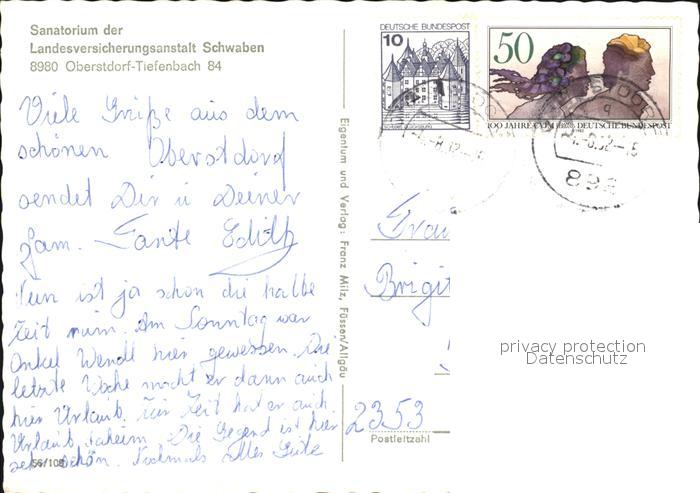 Sanatorium der
Landesversicherungsanstalt Schwaben
8980 Oberstdorf-Tiefenbach 84
Viele Grüße aus dem
schönen Oberstdorf
sendet Dir u Deiner
Fam. Tante Edith
Nun ist ja schon die halbe
Zeit rum. Am Sonntag war
Onkel Wendl hier gewesen. Die
letzte Woche macht er dann auch
hier Urlaub. Zur Zeit hat er auch
Urlaub, daheim. Die Gegend ist hier
sehr schön. Nochmals alles Gute
56/108
Eigentum und Verlag: Franz Milz, Füssen/Allgäu
DEUTSCHE BUNDESPOST
10
50
100 JAHRE CVJM DEUTSCHE BUNDESPOST
Frau
Brigit
privacy protection
Datenschutz
2353
Postleitzahl